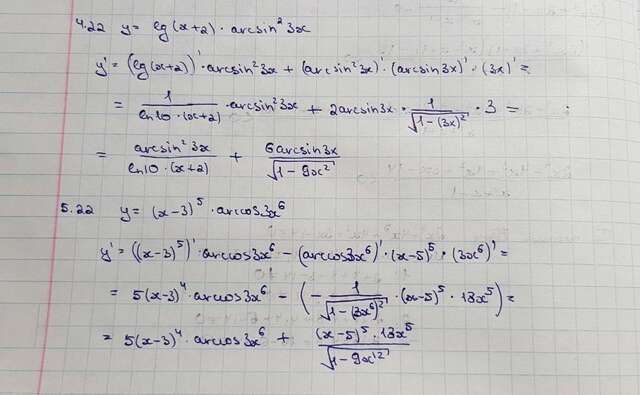 4.22 y = lg(x+2) · arcsin²3x
y' = (lg(x+2))' · arcsin²3x + (arcsin²3x)' · (arcsin3x)' · (3x)' =
= 1/(ln10·(x+2)) · arcsin²3x + 2arcsin3x · 1/√(1-(3x)²) · 3 =
= arcsin²3x/(ln10·(x+2)) + 6arcsin3x/√(1-9x²)
5.22 y = (x-3)⁵ · arccos3x⁶
y' = ((x-3)⁵)' · arccos3x⁶ - (arccos3x⁶)' · (x-5)⁵ · (3x⁶)' =
= 5(x-3)⁴ · arccos3x⁶ - (-1/√(1-(3x⁶)²) · (x-5)⁵ · 18x⁵) =
= 5(x-3)⁴ · arccos3x⁶ + (x-5)⁵ · 18x⁵/√(1-9x¹²)